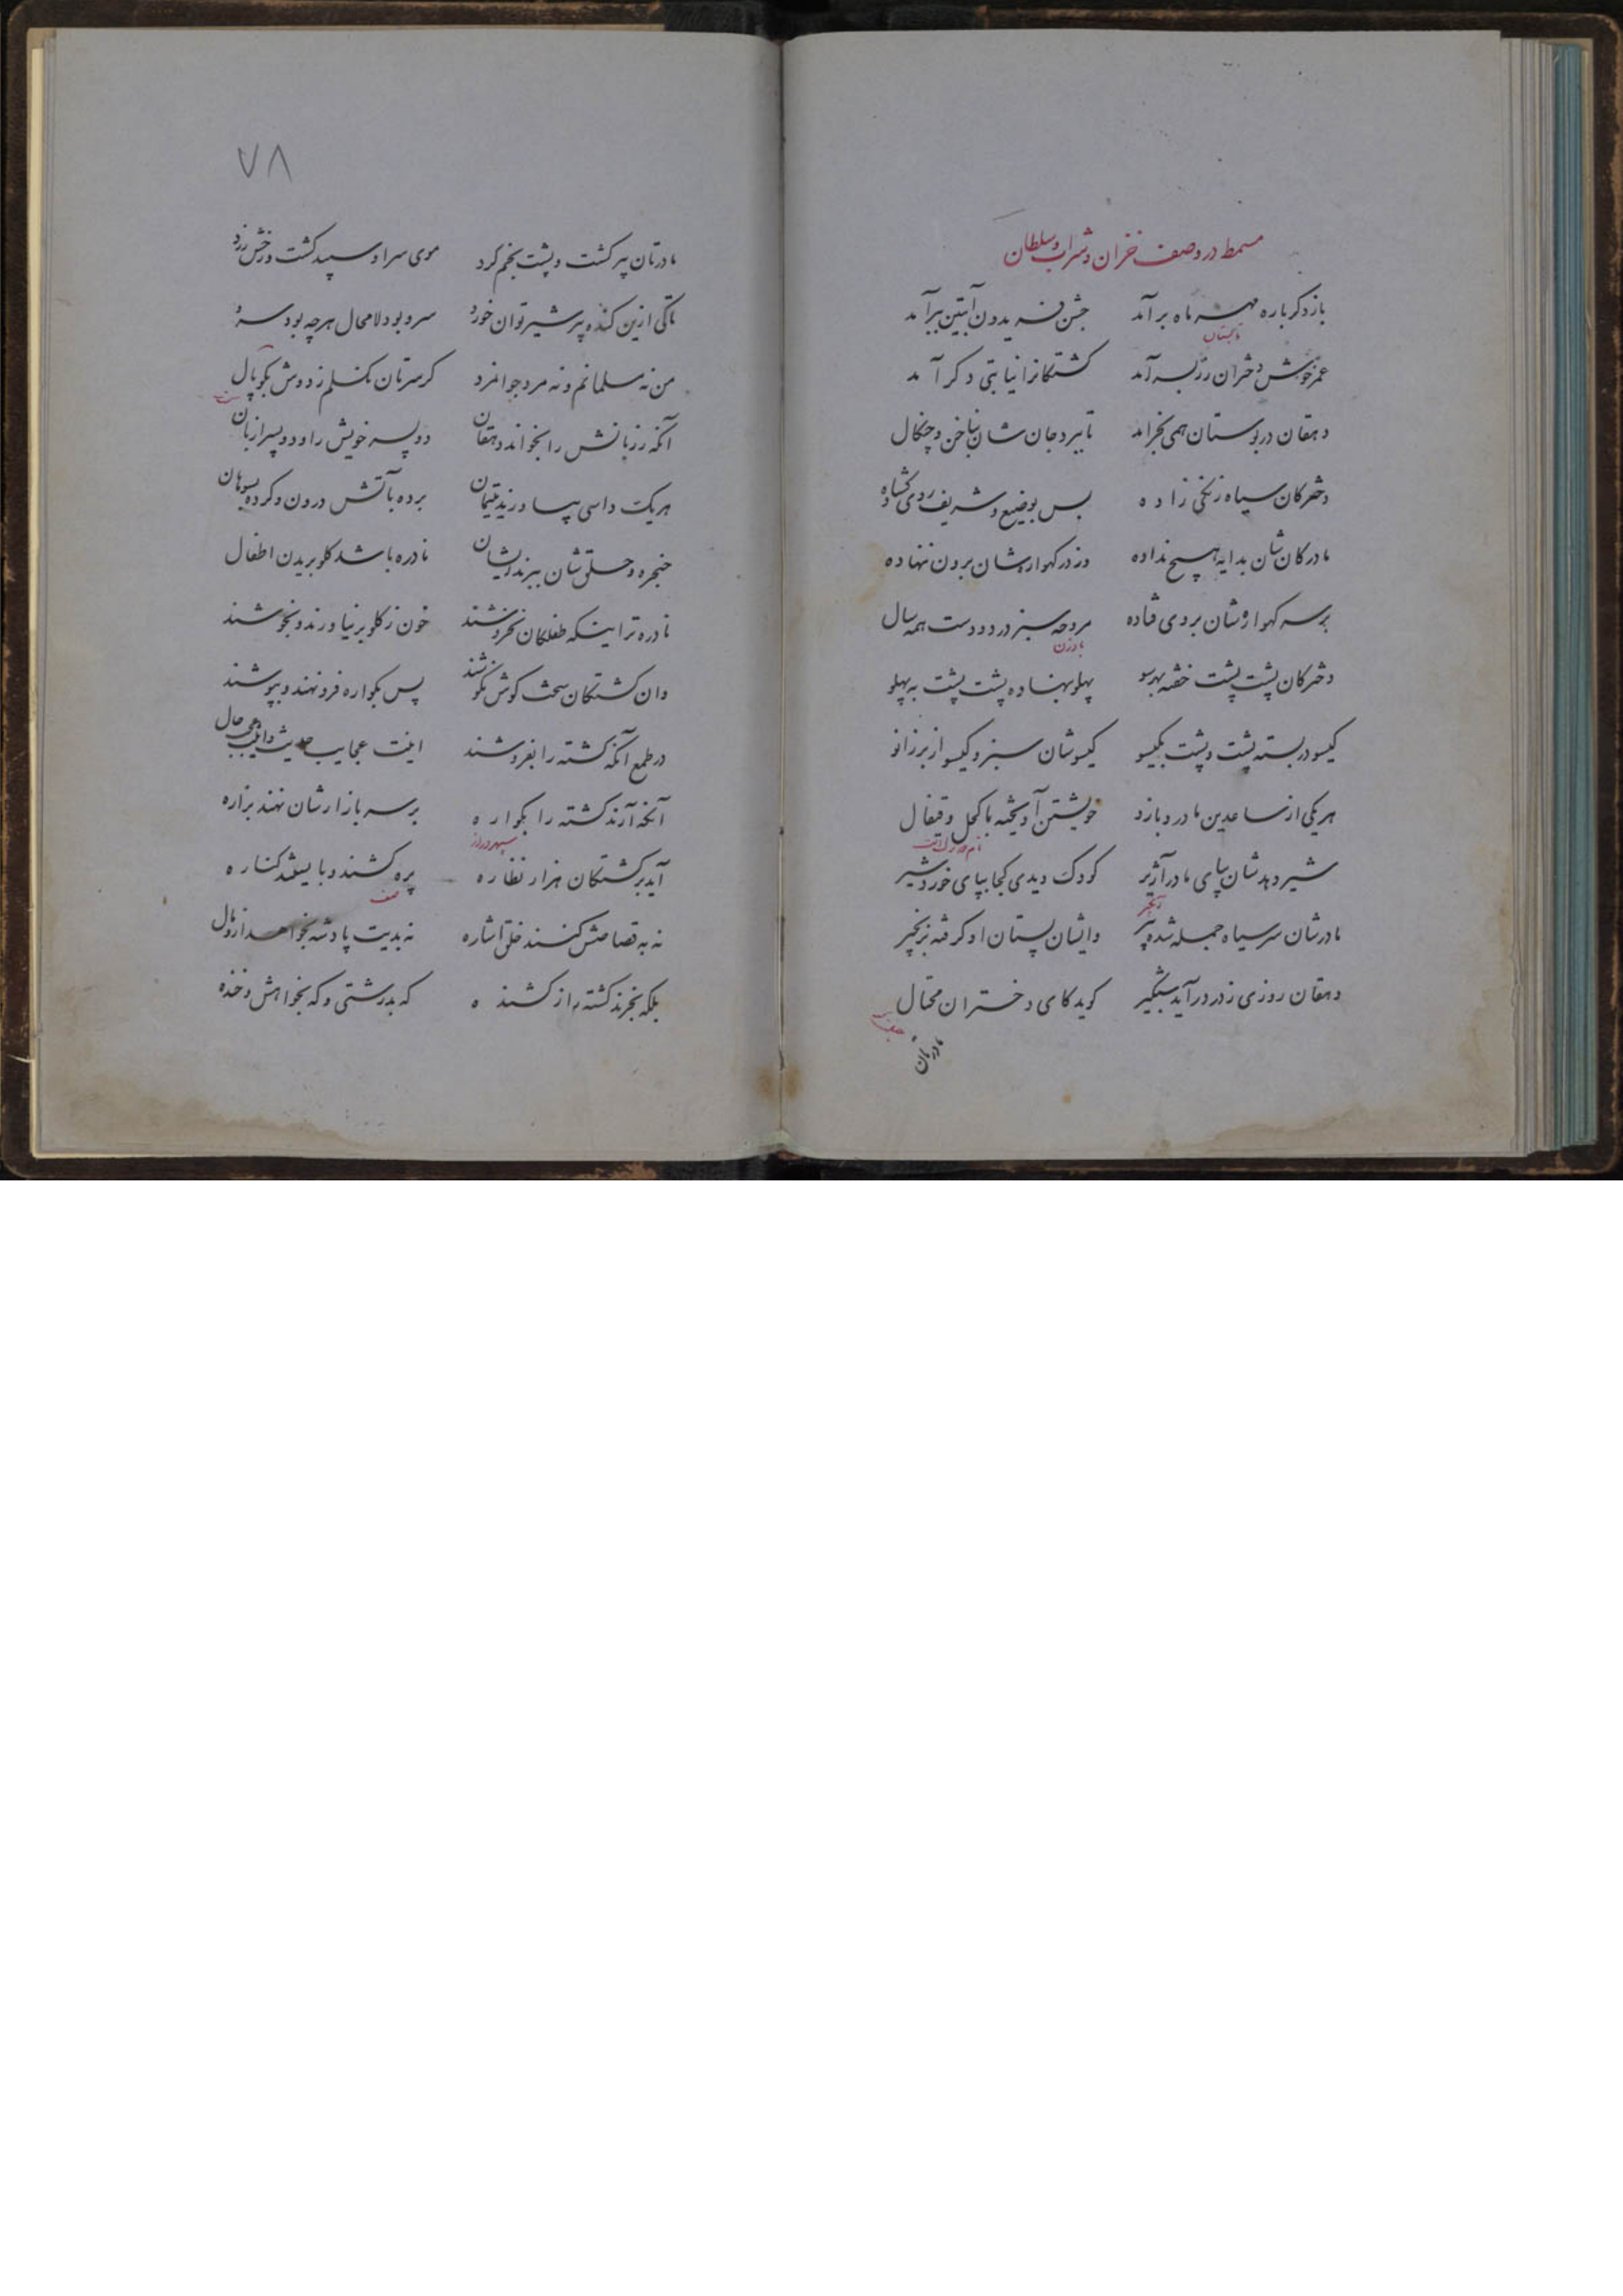 مسمط در وصف خزان و شراب و سلطان
باز دکر باره مهر ماه برآمد جشن فریدون آبتین ببرآمد
تابستان
عمر خوش دختران رز بسر آمد کشتکانرا نیابتی دکر آمد
دهقان در بوستان همی بخرامد تا ببرد جان شان بناخن و چنکال
دخترکان سیاه زنکی زاده بس بوضیع و شریف روی کشاده
مادرکان شان بدایه هیچ نداده وز در کهواره شان برون ننهاده
بر سر کهواره شان بروی فتاده مروحه سبز در دو دست همه سال
بادزن
دخترکان پشت پشت خفته بهرسو پهلو بنهاده پشت پشت به پهلو
کیسو در بسته پشت و پشت بکیسو کیسوشان سبز و کیسو از بر زانو
هر یکی از ساعدین مادر و بازو خویشتن آویخته باکحل و قیفال
شیر دهدشان بپای مادر آژیر کودک دیدی کجا بپای خورد شیر
مادرشان سر سیاه جمله شده پیر وایشان پستان او کرفته بزنجیر
دهقان روزی ز در درآید شبکیر کوید کای دختران محتال
مادرتان
۷۸
مادرتان پیر کشت و پشت بخم کرد موی سر او سپید کشت و رخش زرد
تا کی ازین کنده پیر شیر توان خورد سرو بود لامحال هرچه بود سرو
من نه مسلمانم و نه مرد جوانمرد کر سرتان نکسلم ز دوش بکوپال
آنکه رزبانش را بخواند دهقان دو پسر خویش را و دو پسر از بان
هر یک داسی بیاورند یتیمان برده بآتش درون و کرده بسوهان
حنجره و حلق شان ببرند ایشان نادره باشد کلو بریدن اطفال
نادره تر اینکه طفلکان نخروشند خون ز کلو برنیاورند و نجوشند
وان کشتکان سخت کوش نکوشند پس بکواره فرو نهند و بپوشند
در طمع آنکه کشته را بفروشند اینت عجایب حدیث و اینت عجب حال
آنکه آرند کشته را بکواره بر سر بازارشان نهند بزاره
آید بر کشتکان هزار نظاره پره کشند و بایستند کناره
صف
نه به قصاصش کنند خلق اشاره نه بدیت پادشه بخواهد ازو مال
بلکه بخرند کشته را ز کشنده که بدرشتی و که بخواهش و خنده